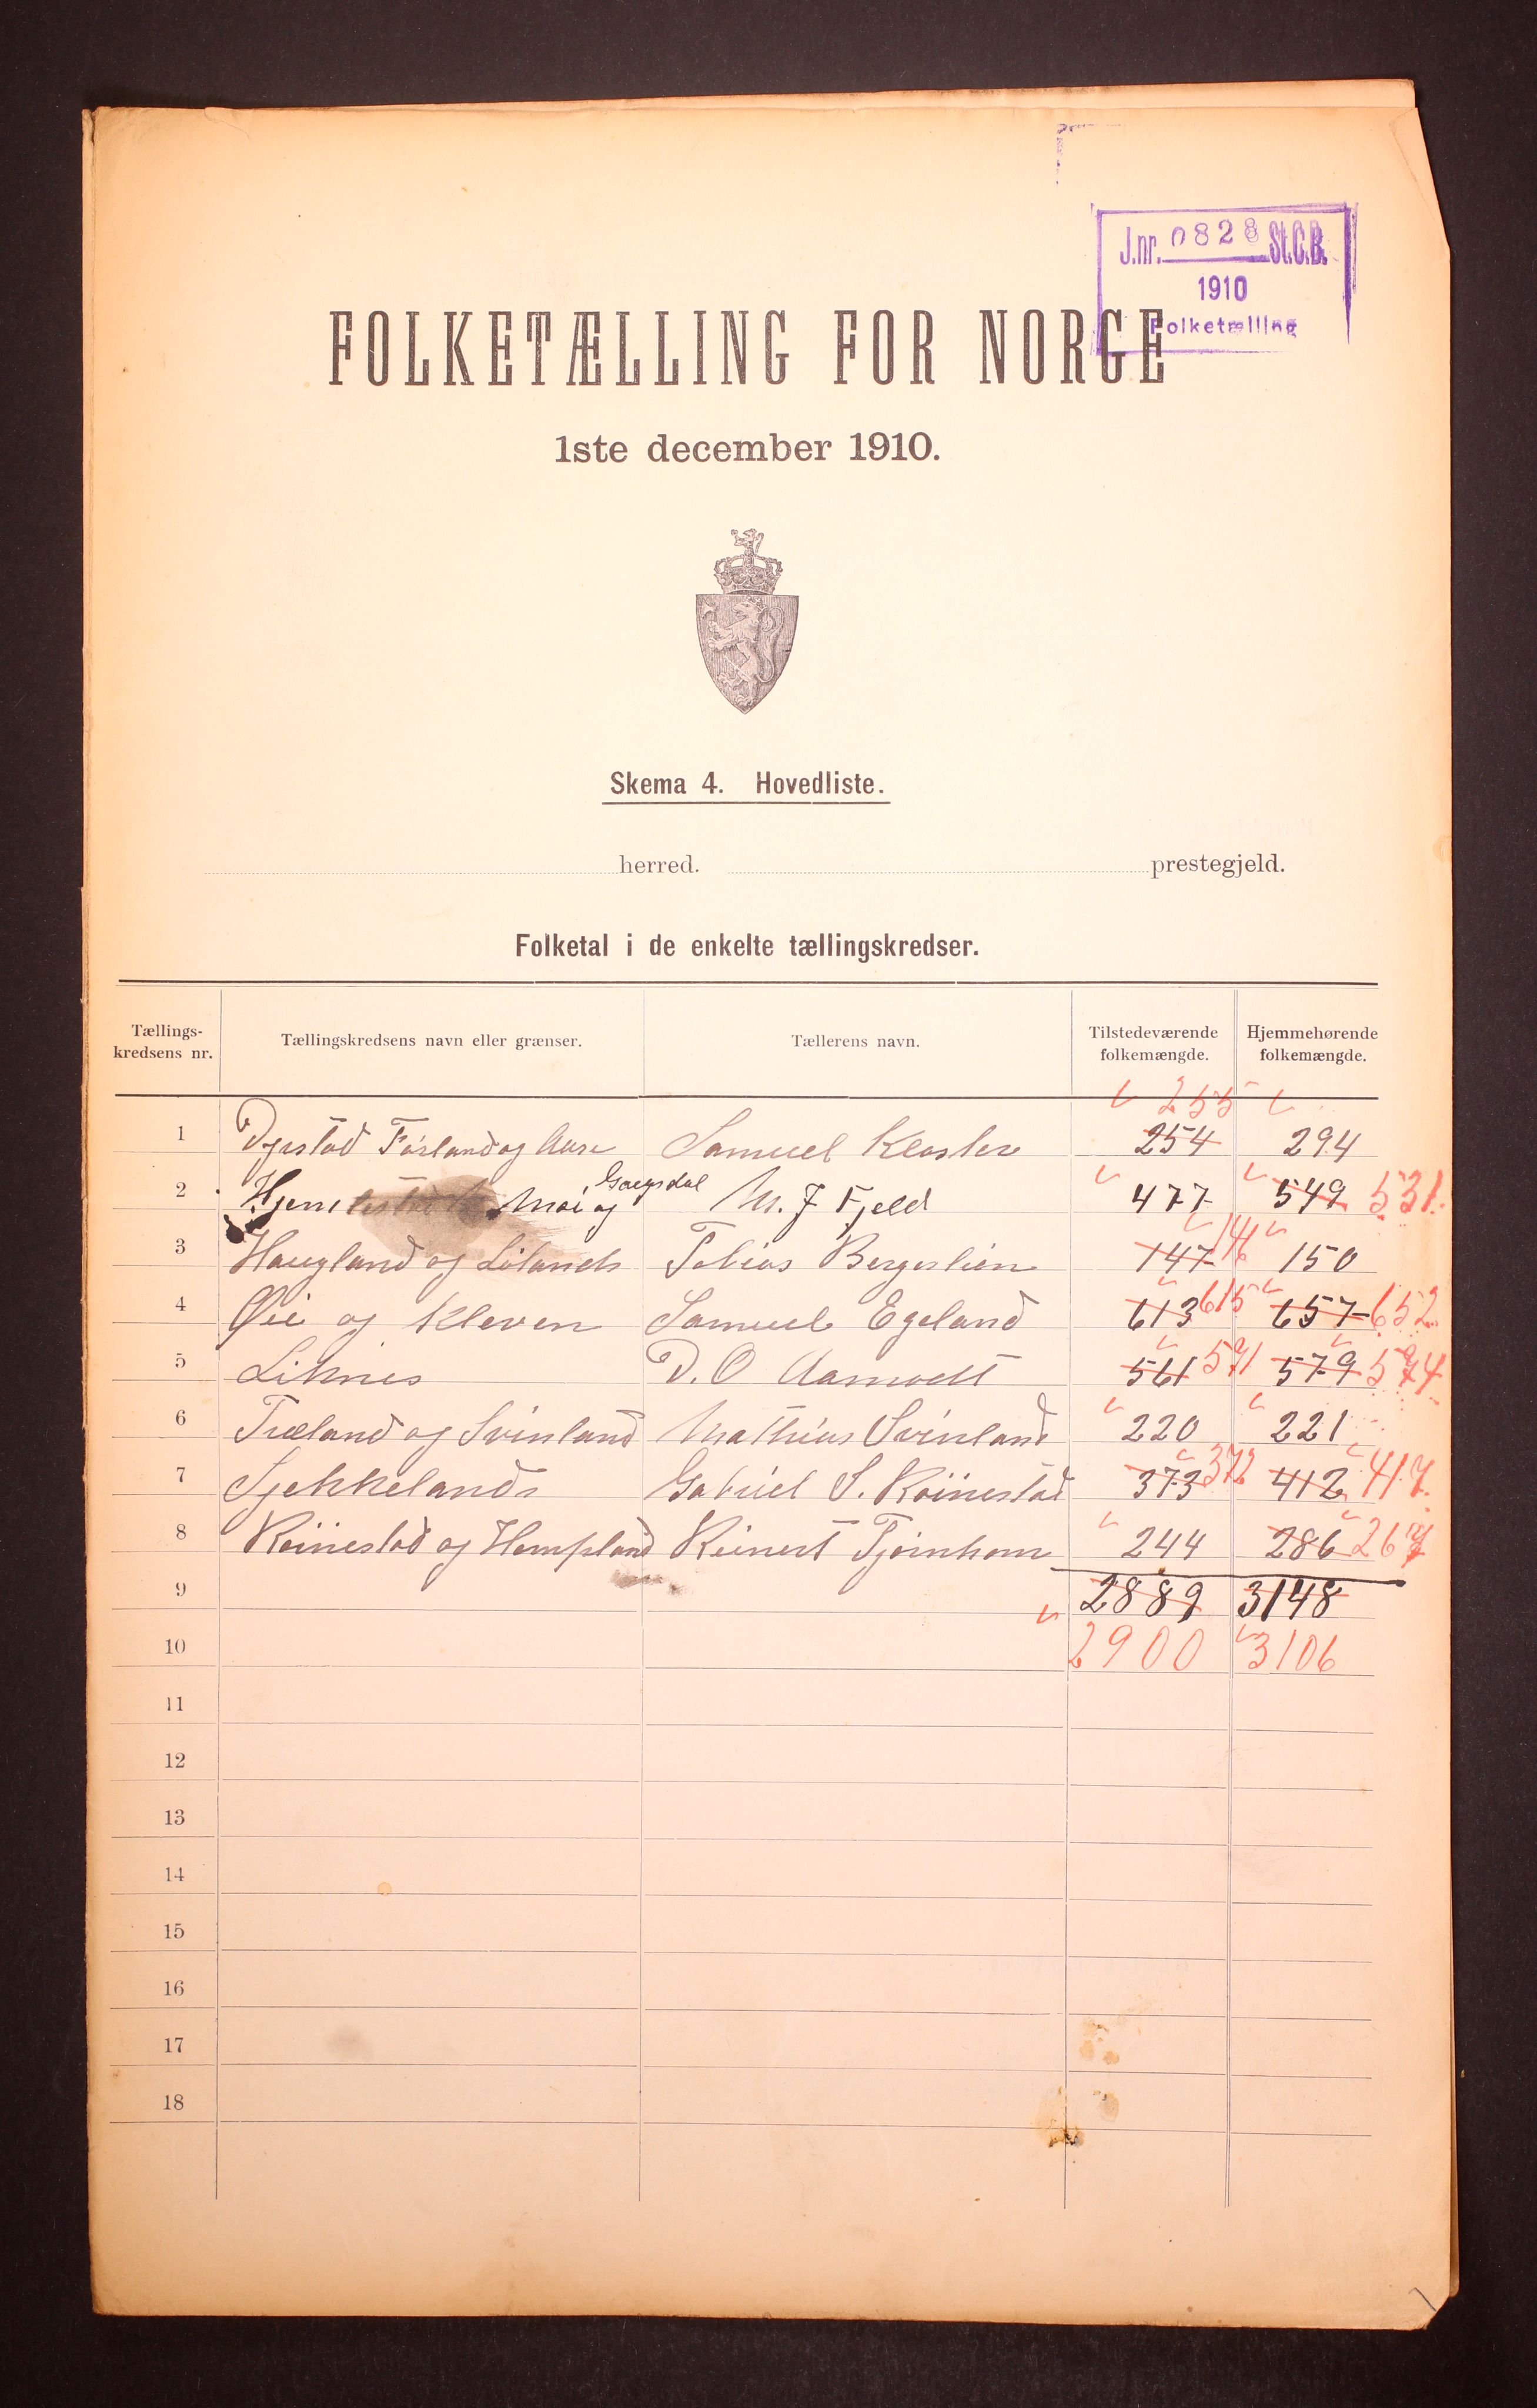 J.nr. 0828 St.C.B.
1910
Folketælling
FOLKETÆLLING FOR NORGE
1ste december 1910.
Skema 4. Hovedliste.
herred. prestegjeld.
Folketal i de enkelte tællingskredser.
Tællings-
kredsens nr.
Tællingskredsens navn eller grænser.
Tællerens navn.
Tilstedeværende
folkemængde.
Hjemmehørende
folkemængde.
255
1 DyrstadFørland og Aase Samuel Kloster 254 294
Gaugsdal
2 Moi og M. J Fjeld 477 549 531
3 Haugland og Lølands Tobias Bergeslien 147 146 150
4 Øie og Kleven Samuel Egeland 613 615 657 652
5 Liknes D. O Aamodt 561 571 579 574
6 Træland og Svinland Mathias Svinland 220 221
7 Sjekkelands Gabriel S. Röinestad 373 372 412 417
8 Röinestad og Hompland Reinert Tjørnhom 244 286 267
9 2889 3148
10 2900 3106
11
12
13
14
15
16
17
18